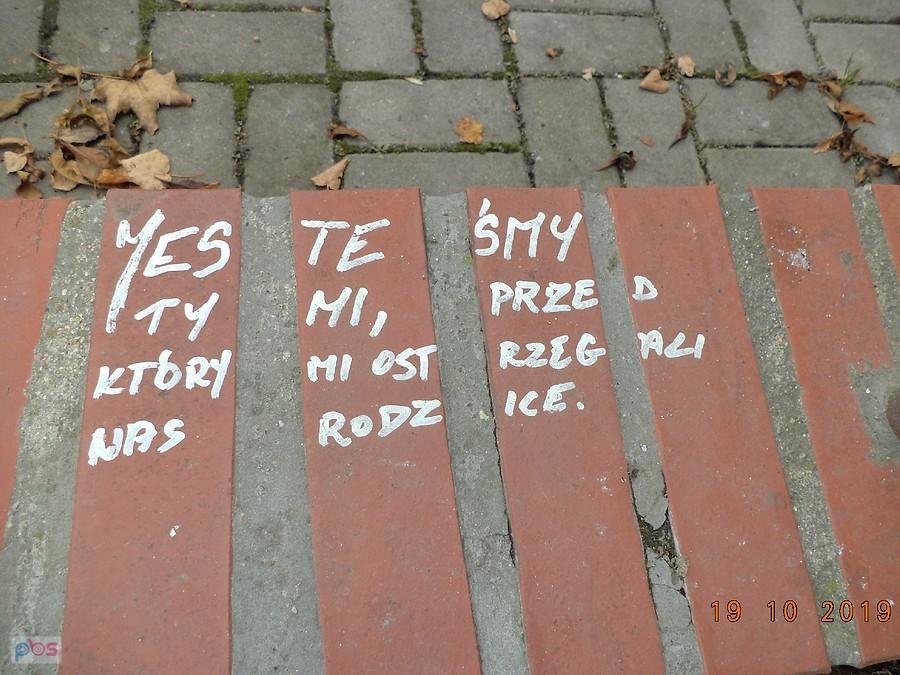 YESTEŚMY
TYMI, PRZED
KTÓRYMI OSTRZEGALI
NAS RODZICE.
19 10 2019
pbs